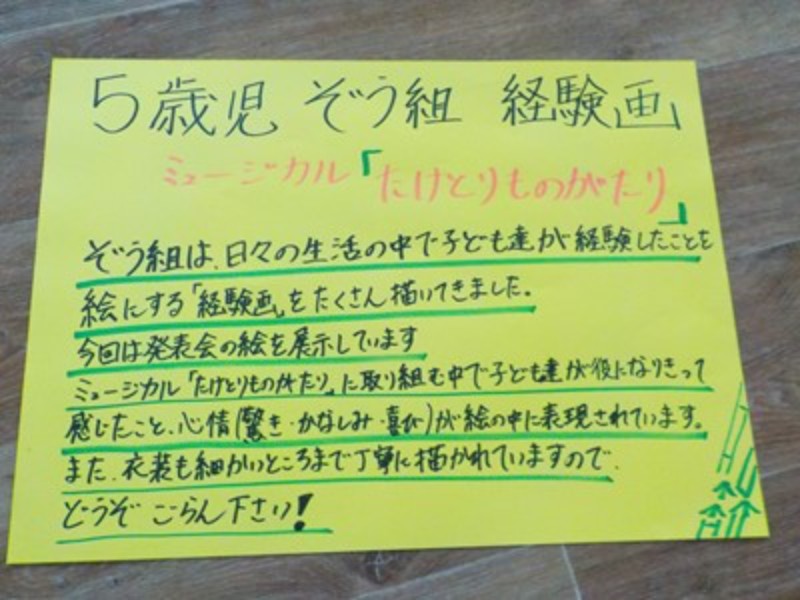 5歳児 ぞう組 経験画
ミュージカル「たけとりものがたり」
ぞう組は、日々の生活の中で子ども達が経験したことを
絵にする「経験画」をたくさん描いてきました。
今回は発表会の絵を展示しています
ミュージカル「たけとりものがたり」に取り組む中で子ども達が役になりきって
感じたこと、心情(驚き・かなしみ・喜び)が絵の中に表現されています。
また、衣装も細かいところまで丁寧に描かれていますので、
どうぞ ごらん下さい!